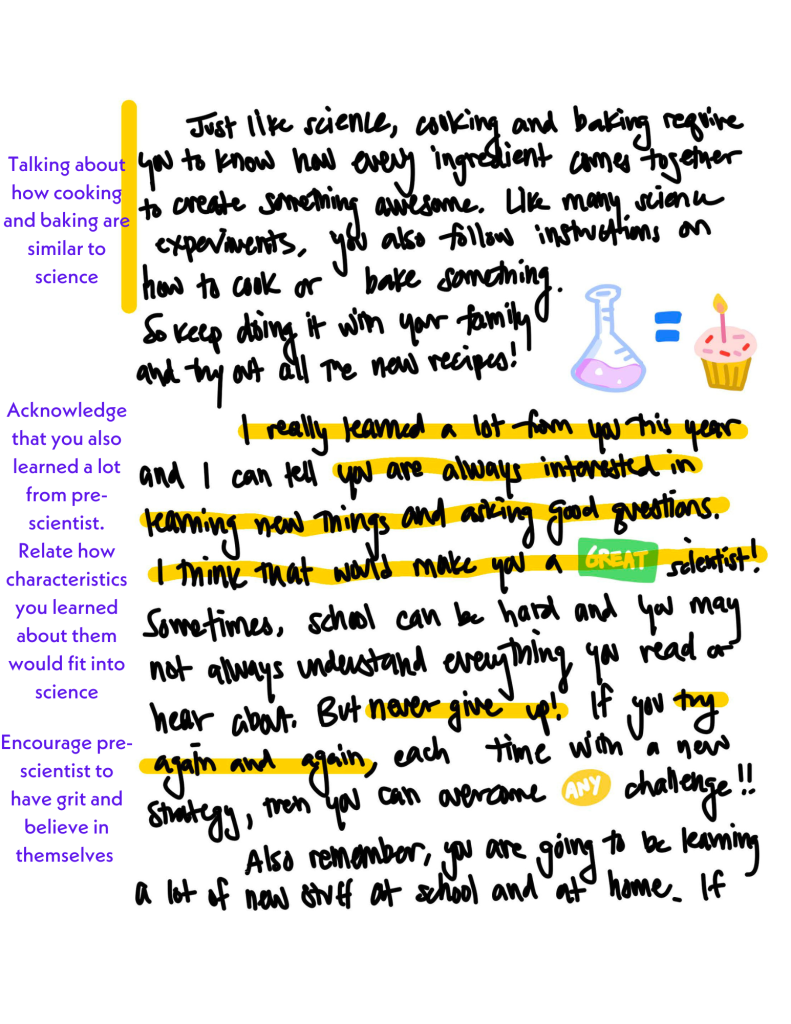 Just like science, cooking and baking require
you to know how every ingredient comes together
to create something awesome. Like many science
experiments, you also follow instructions on
how to cook or bake something.
So keep doing it with your family
and try out all the new recipes!
Talking about
how cooking
and baking are
similar to
science
I really learned a lot from you this year
and I can tell you are always interested in
learning new things and asking good questions.
I think that would make you a GREAT scientist!
Sometimes, school can be hard and you may
not always understand everything you read or
hear about. But never give up! If you try
again and again, each time with a new
strategy, then you can overcome ANY challenge!!
Acknowledge
that you also
learned a lot
from pre-
scientist.
Relate how
characteristics
you learned
about them
would fit into
science
Encourage pre-
scientist to
have grit and
believe in
themselves
Also remember, you are going to be learning
a lot of new stuff at school and at home. If